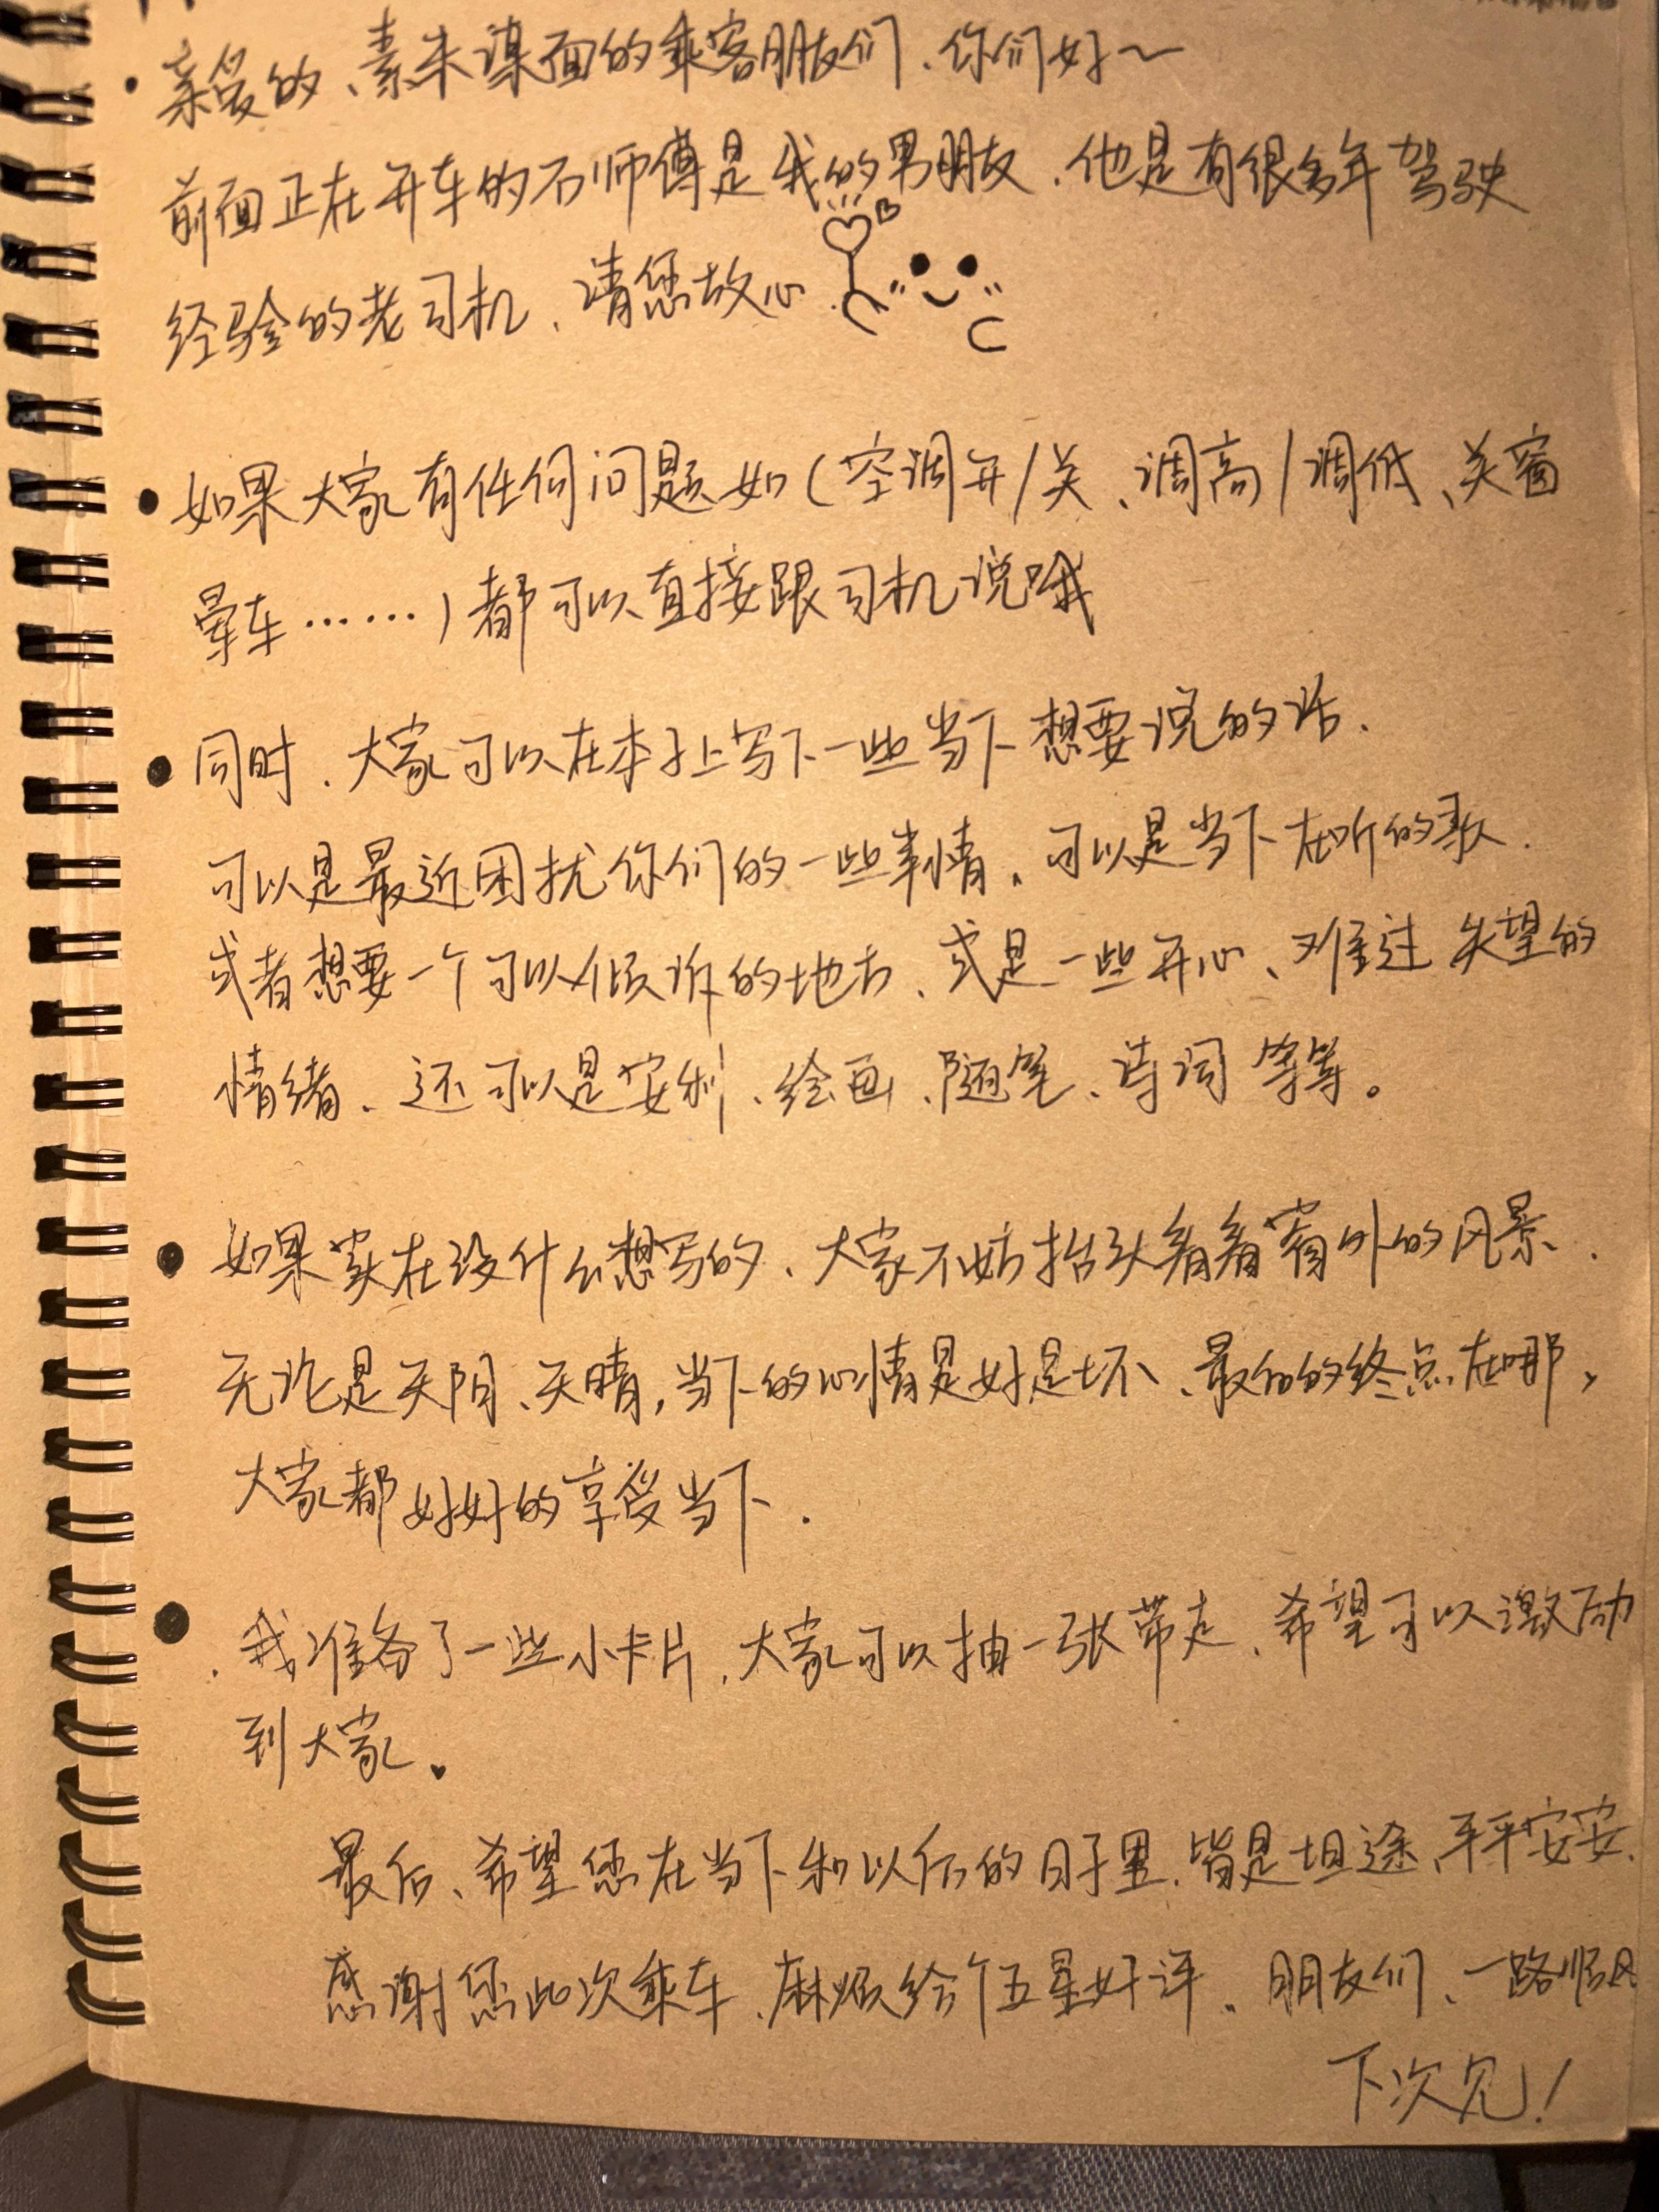 •亲爱的、素未谋面的乘客朋友们、你们好～
前面正在开车的石师傅是我的男朋友、他是有很多年驾驶
经验的老司机、请您放心
•如果大家有任何问题如(空调开/关、调高/调低、关窗
晕车……)都可以直接跟司机说哦
•同时、大家可以在本子上写下一些当下想要说的话.
可以是最近困扰你们的一些事情。可以是当下在听的歌.
或者想要一个可以倾诉的地方、或是一些开心、难过 失望的
情绪、还可以是安利、绘画、随笔、诗词 等等。
•如果实在没什么想写的、大家不妨抬头看看窗外的风景.
无论是天阴、天晴,当下的心情是好是坏、最后的终点在哪,
大家都好好的享受当下.
•我准备了一些小卡片,大家可以抽一张带走、希望可以激励
到大家。
最后、希望您在当下和以后的日子里.皆是坦途、平平安安.
感谢您此次乘车、麻烦给个五星好评。朋友们、一路顺风
下次见!